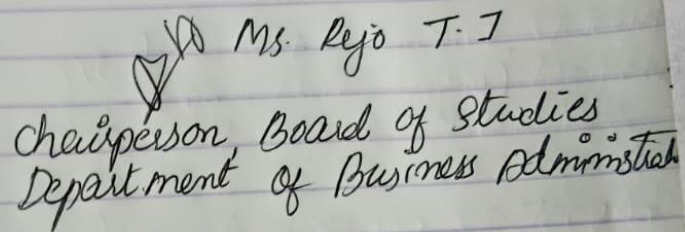 Ms. Rejo T. J
Chairperson, Board of Studies
Department of Business Administrat